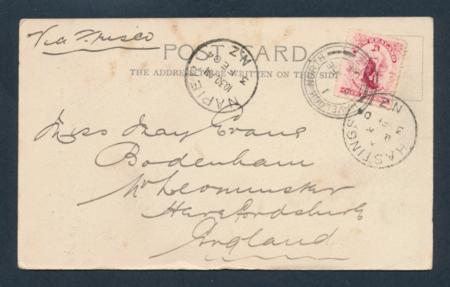 Via Frisco
POST CARD
THE ADDRESS TO BE WRITTEN ON THIS SIDE
NAPIER
10.30 AM
N.Z
HAVELOCK NORTH
HASTINGS
N.Z
Miss May Evans
Bodenham
Nr Leominster
Herefordshire
England